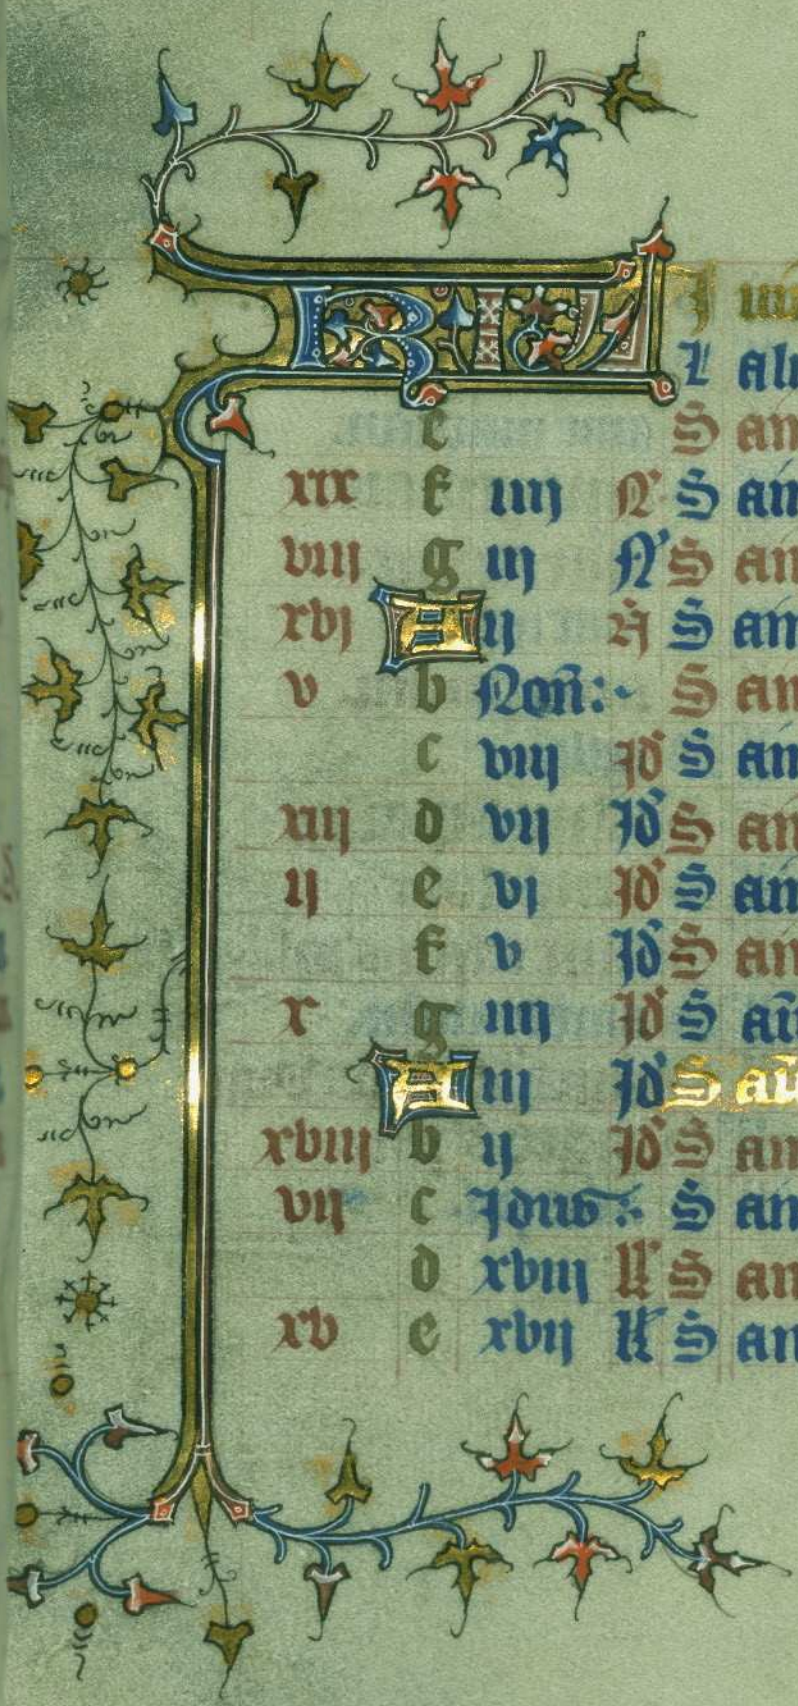 KL J ui
L alu
e S an
xix f iiij N' S ain
viij g iij N' S an
xvj A ij N S ain
v b Non̄: S an
c viij Id S ain
xiij d vij Id S an
ij e vj Id S ain
f v Id S an
x g iiij Id S aī
A iij Id S aī
xviij b ij Id S an
vij c Idus: S an
d xviij kl' S an
xv e xvij kl' S an